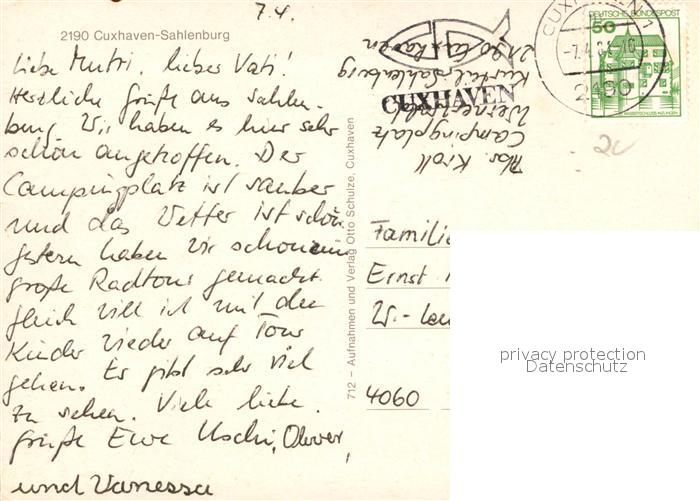 7.4.
2190 Cuxhaven-Sahlenburg
Liebe Mutti, lieber Vati!
Herzliche Grüße aus Sahlen-
burg. Wir haben es hier sehr
schön angetroffen. Der
Campingplatz ist sauber
und das Wetter ist schön,
gestern haben wir schon eine
große Radtour gemacht.
gleich will ich mit den
Kinder wieder auf Tour
gehen. Es gibt sehr viel
zu sehen. Viele liebe
Grüße Eure Uschi, Oliver,
und Vanessa
712 – Aufnahmen und Verlag Otto Schulze, Cuxhaven
Abs. Kroll
Campingplatz
Wernerwald
Kurteil Sahlenburg
2190 Cuxhaven
CUXHAVEN
CUXHAVEN
-7.4.
2190
DEUTSCHE BUNDESPOST
50
WASSERSCHLOSS INZLINGEN
Familie
Ernst
4060
privacy protection
Datenschutz